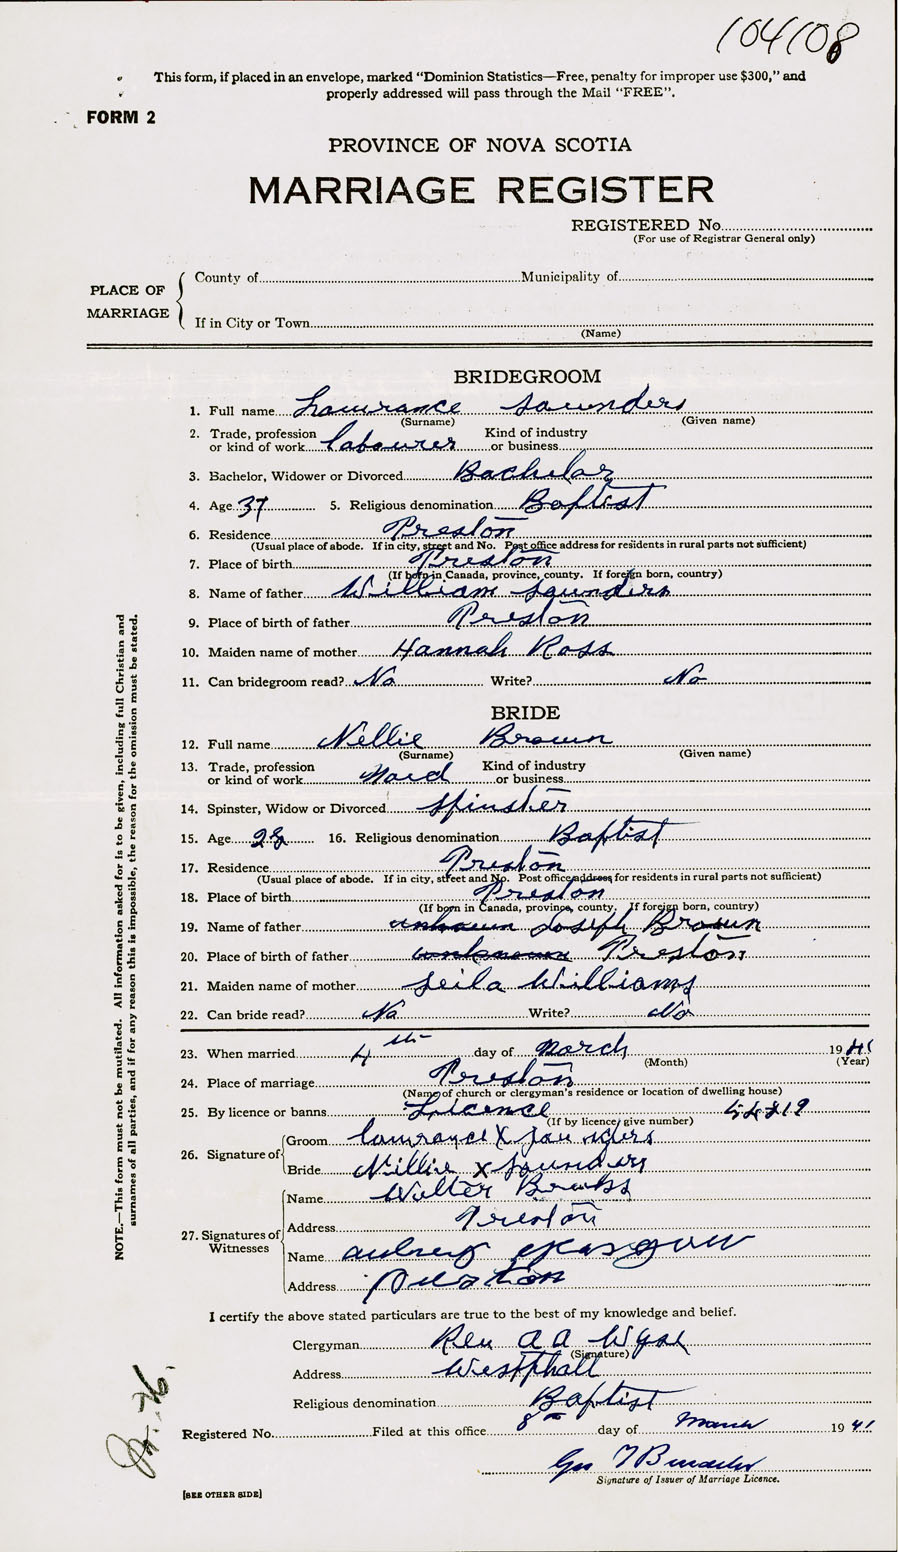 104108
This form, if placed in an envelope, marked "Dominion Statistics—Free, penalty for improper use $300," and
properly addressed will pass through the Mail "FREE".
FORM 2
PROVINCE OF NOVA SCOTIA
MARRIAGE REGISTER
REGISTERED No.
(For use of Registrar General only)
PLACE OF MARRIAGE
County of Municipality of
If in City or Town
(Name)
BRIDEGROOM
1. Full name Lawrance Saunders
(Surname) (Given name)
2. Trade, profession or kind of work labourer Kind of industry or business
3. Bachelor, Widower or Divorced Bachelor
4. Age 37 5. Religious denomination Baptist
6. Residence Preston
(Usual place of abode. If in city, street and No. Post office address for residents in rural parts not sufficient)
7. Place of birth Preston
(If born in Canada, province, county. If foreign born, country)
8. Name of father William Saunders
9. Place of birth of father Preston
10. Maiden name of mother Hannah Ross
11. Can bridegroom read? No Write? No
BRIDE
12. Full name Nellie Brown
(Surname) (Given name)
13. Trade, profession or kind of work Maid Kind of industry or business
14. Spinster, Widow or Divorced Spinster
15. Age 28 16. Religious denomination Baptist
17. Residence Preston
(Usual place of abode. If in city, street and No. Post office address for residents in rural parts not sufficient)
18. Place of birth Preston
(If born in Canada, province, county. If foreign born, country)
19. Name of father unknown Joseph Brown
20. Place of birth of father unknown Preston
21. Maiden name of mother Leila Williams
22. Can bride read? No Write? No
23. When married 4th day of March 1941
(Month) (Year)
24. Place of marriage Preston
(Name of church or clergyman's residence or location of dwelling house)
25. By licence or banns Licence
(If by licence, give number)
26. Signature of
Groom Lawrance X Saunders
Bride Nillie X Saunders
27. Signatures of Witnesses
Name Walter Brooks
Address Preston
Name aubrey
Address Preston
I certify the above stated particulars are true to the best of my knowledge and belief.
Clergyman Rev A A Wyse
(Signature)
Address Westphall
Religious denomination Baptist
Registered No. Filed at this office 8th day of March 1941
Geo
Signature of Issuer of Marriage Licence.
[SEE OTHER SIDE]
NOTE.—This form must not be mutilated. All information asked for is to be given, including full Christian and
surnames of all parties, and if for any reason this is impossible, the reason for the omission must be stated.